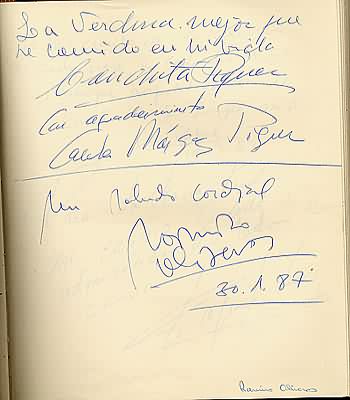 La Verdura mejor que
he comido en mi vida
Conchita Piquer
Con agradecimiento
Concha Márquez Piquer
Un saludo cordial
Ramiro
Oliveros
30.1.87
Ramiro Oliveros